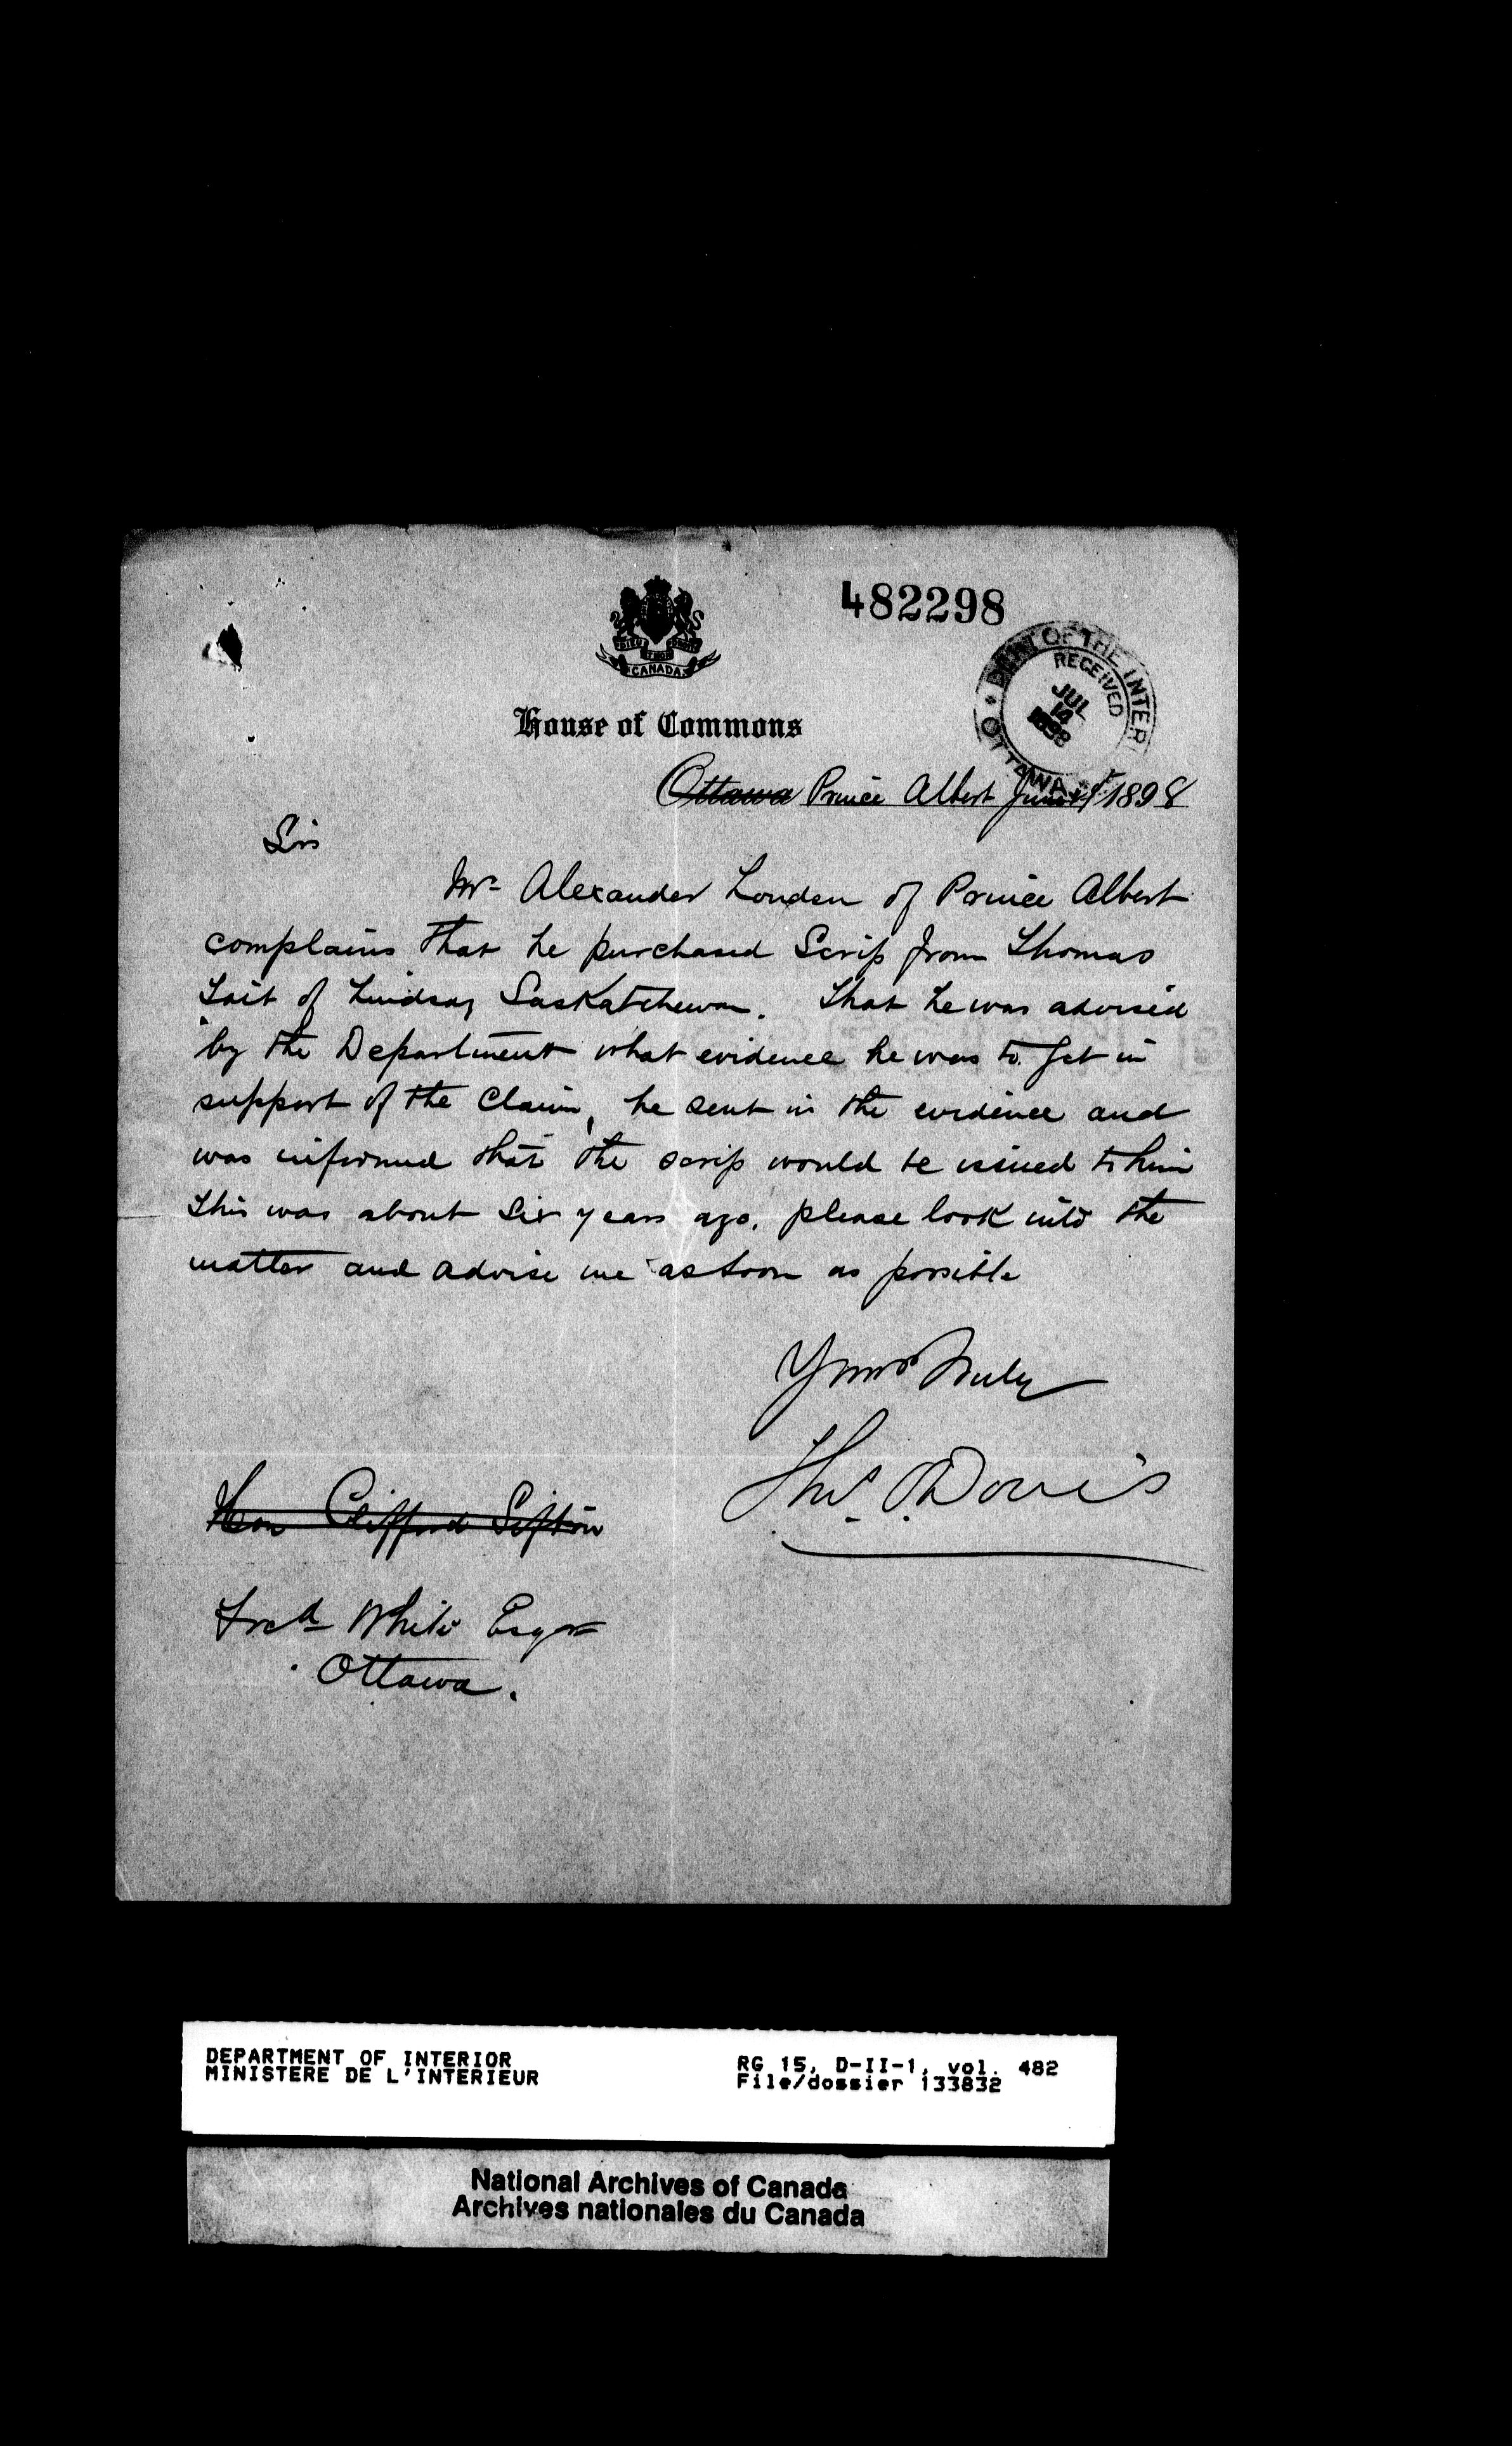 482298
DIEU ET MON DROIT
CANADA
DEPT OF THE INTERIOR
OTTAWA
RECEIVED
JUL
14
1898
House of Commons
Ottawa Prince Albert June 1898
Sir
Mr Alexander Louden of Prince Albert
complains that he purchased Scrip from Thomas
Tait of Lindsay Saskatchewan. That he was advised
by the Department what evidence he was to get in
support of the Claim, he sent in the evidence and
was informed that the scrip would be issued to him
This was about Six years ago. please look into the
matter and advise me as soon as possible
Yours truly
Thos. O Davis
Hon Clifford Sifton
Fred White Esqr
Ottawa.
DEPARTMENT OF INTERIOR
MINISTERE DE L'INTERIEUR
RG 15, D-II-1, vol. 482
File/dossier 133832
National Archives of Canada
Archives nationales du Canada